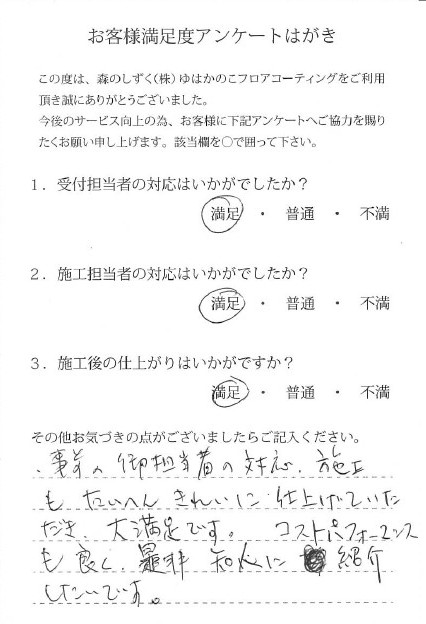 お客様満足度アンケートはがき
この度は、森のしずく(株)ゆはかのこフロアコーティングをご利用
頂き誠にありがとうございました。
今後のサービス向上の為、お客様に下記アンケートへご協力を賜り
たくお願い申し上げます。該当欄を○で囲って下さい。
1．受付担当者の対応はいかがでしたか？
満足 ・ 普通 ・ 不満
2．施工担当者の対応はいかがでしたか？
満足 ・ 普通 ・ 不満
3．施工後の仕上がりはいかがですか？
満足 ・ 普通 ・ 不満
その他お気づきの点がございましたらご記入ください。
、事前の御担当者の対応、施工
も たいへん きれいに 仕上げていた
だき、大満足です。 コストパフォーマンス
も良く、是非 知人に 紹介
したいです。